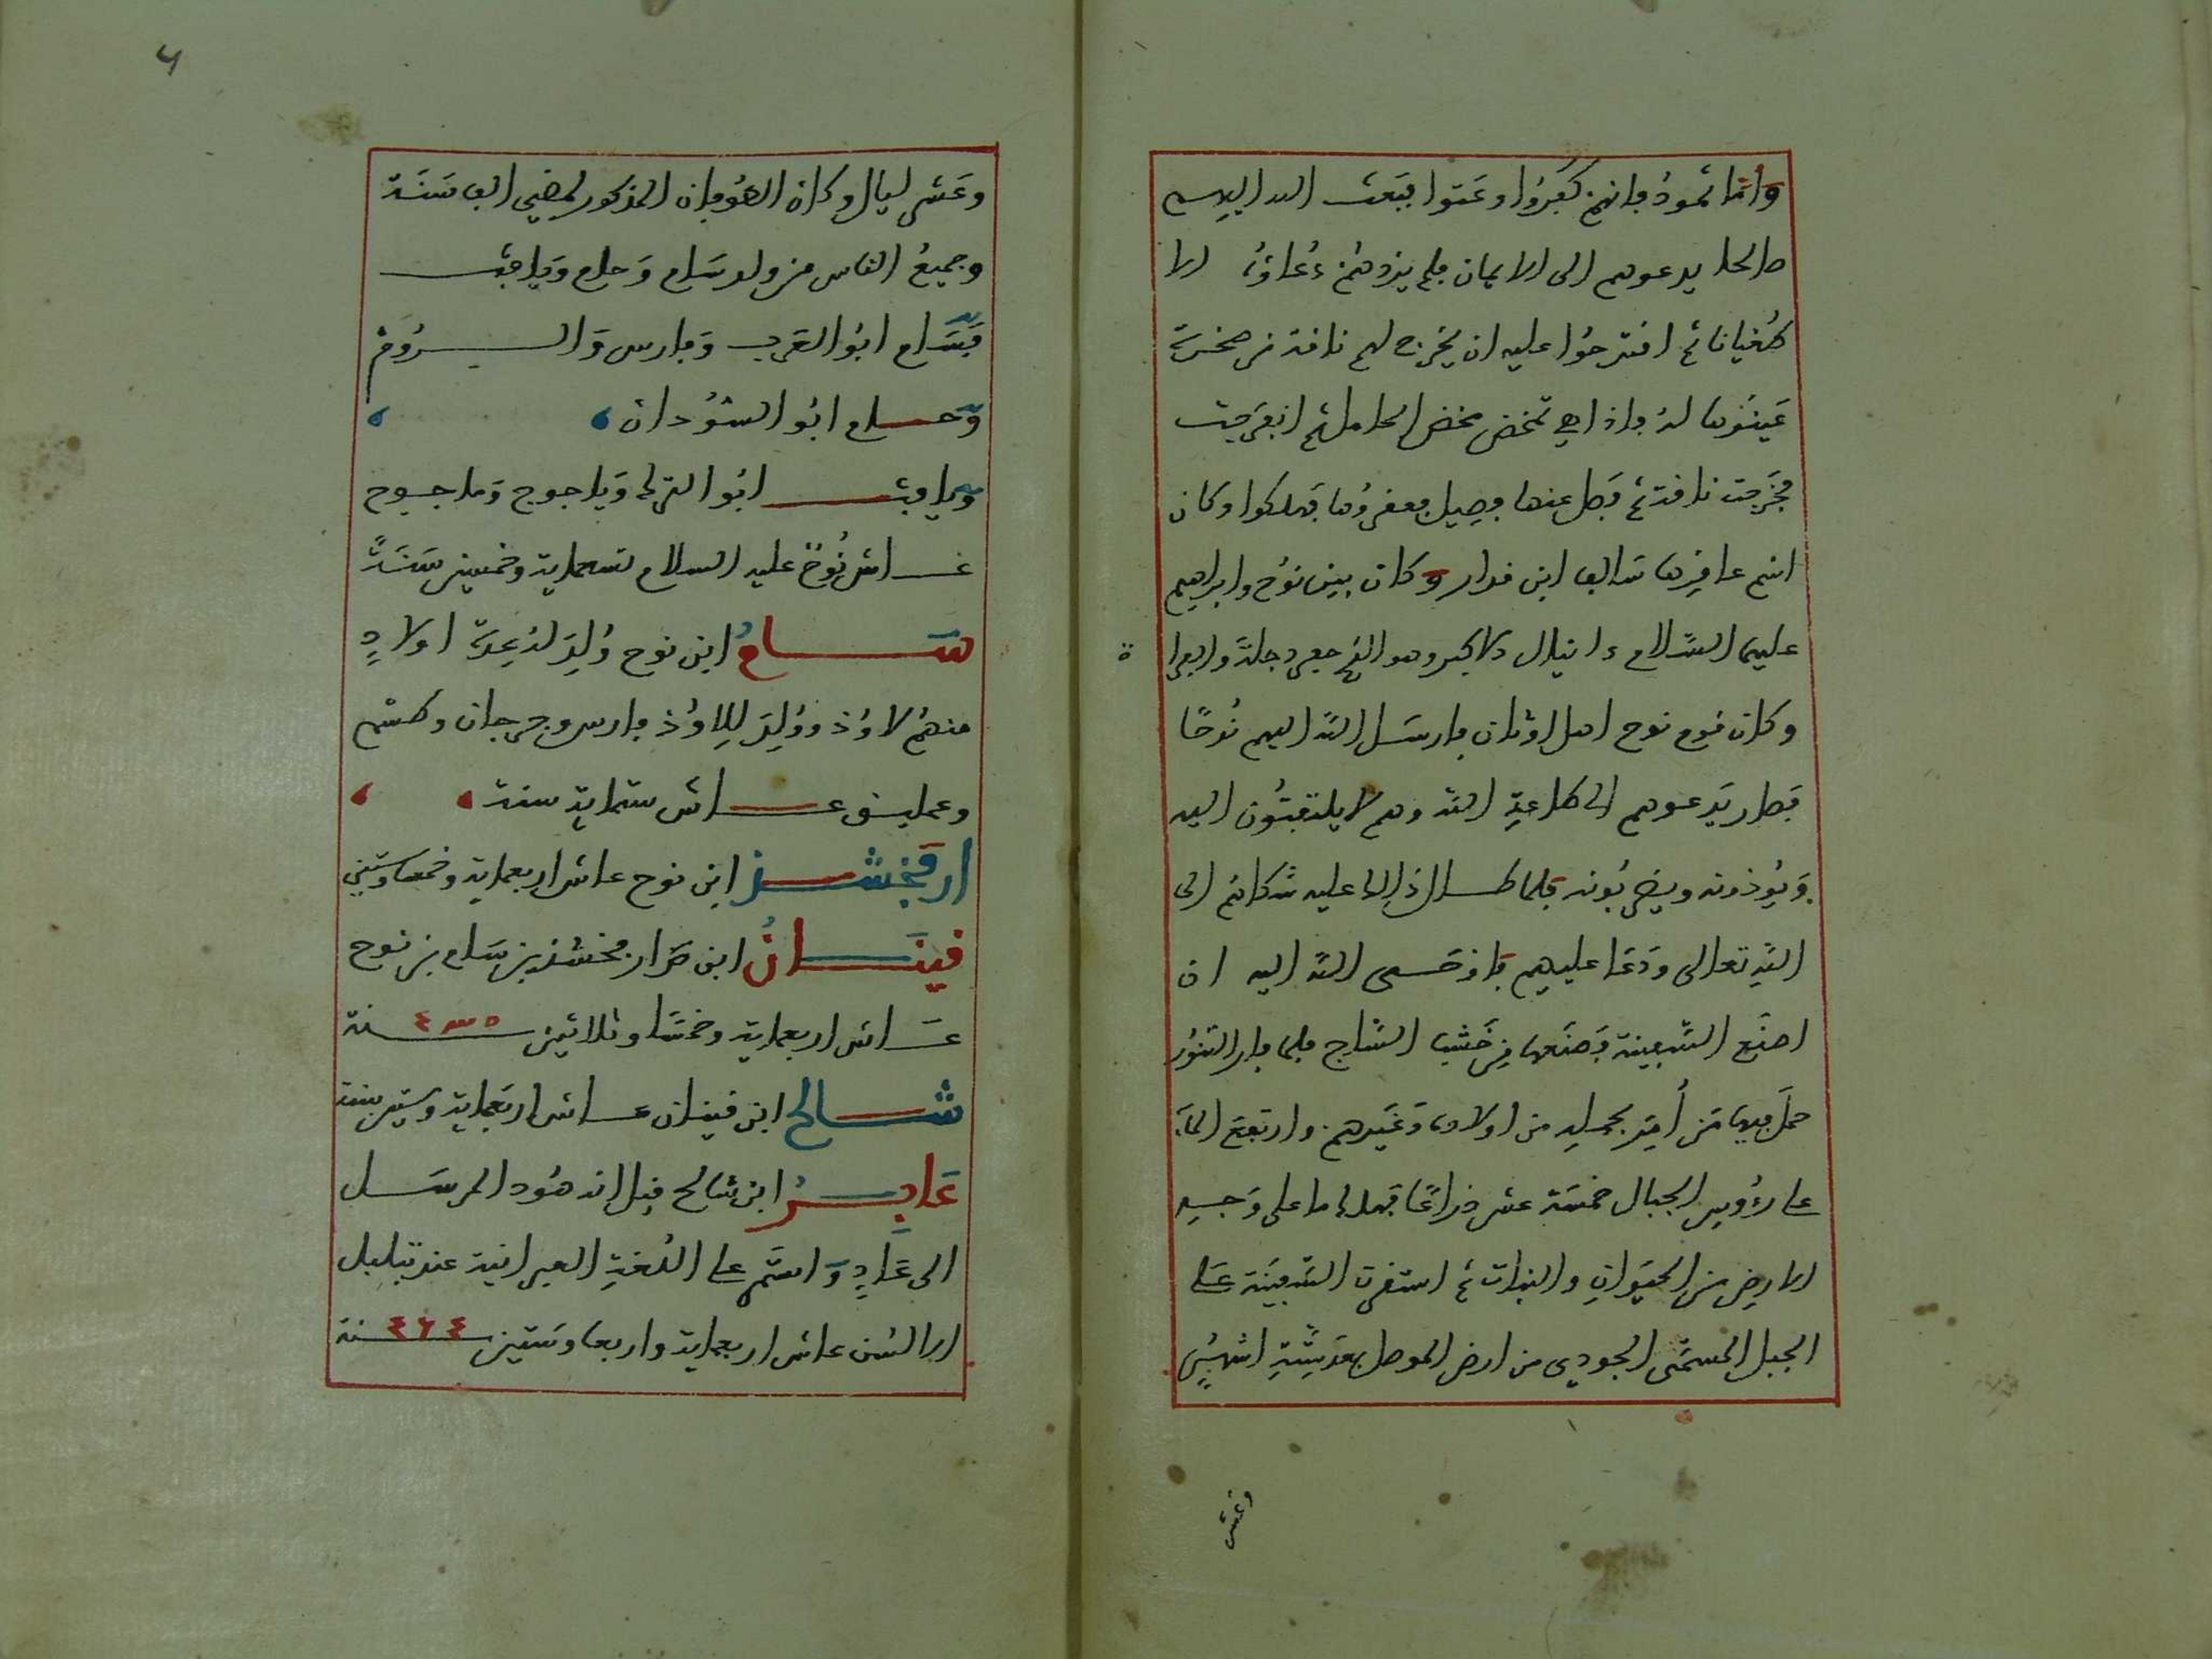 وأمّا ثمودُ فانهم كفَرُوا وعَتوا فبَعث الله اليهم
صالحا يدعوهم الى الايمان فلم يزدهُم دُعاؤه الا
طُغيانا ثم افترحُوا عليه ان يخرج لهم ناقة من صخرة
عَينَوها لهُ فاذا هي تمخض مخض الحامل ثم انفرجت
فخرَجت ناقة ثم فصل عنها فصيل فعقرُوها فهلكوا وكان
اسم عاقرها سالف ابن قدار وكان بين نوُح وابراهيم
عليهما السَّلام دانيال الاكبر وهو الذي حفر دجلة والفرا ة
وكان قوم نوح اهل اوثان فارسَل الله اليهم نُوحًا
فصار يَدعوهم الى طاعةِ الله وهم لا يلتفتُون اليه
وَيُوذونه ويضربُونه فلما طال ذالك عليه شكاهم الى
اللهِ تعالى ودَعَا عليهم فاوحى الله اليه ان
اصنَع السَّفينة فصَنعها مِن خَشب السَّاج فلما فار التنوُر
حمَل فيها مَن أُمِرَ بحمله من اولاده وَغَيرهم وارتفع الماَء
على رءُوسِ الجبال خمسَة عشر ذراعًا فهلك ما على وَجه
الارضِ من الحيَوانِ والنبات ثم استقرت السَّفينَة على
الجبل المسمَّى الجودي من ارض الموصل بعدَ سِتَّةِ اشهُرٍ
وعشر
وعَشر ليال وكان الطوُفان المذكور لمضي الف سَنَة
وجميعُ الناس من ولد سَام وَحام وَيافث
فَسَام ابوُ العَرب وَفارس وَالرُوم
وَحام ابوُ السُّوُدان
وَيافث ابوُ الترك وَياجوج وَماجوج
عاش نُوحُ عليه السلام تسعماية وخمسين سَنَةً
سَامُ ابن نوح وُلِدَ لهُ عِدَة اولادٍ
منهُم لاوُذ ووُلِدَ لِلاوُذ فارس وجرجان وطسم
وعمليق عاش ستماية سنة
ارفخشذ ابن نوح عاش اربعماية وخمسا وستين
قينَانُ ابن ارفخشذ بن سَام بن نوح
عَاش اربعماية وخمسَا وثلاثين ٤٣٥ سنة
شالح ابن قينان عاش اربَعماية وستين سنة
عَابِرُ ابن شالح قيل انه هوُد المرسَل
الى عَادٍ وَاستمَر على اللغةِ العبرانية عند تبلبل
الالسُن عاش اربعماية واربعا وستين ٤٦٤ سنة